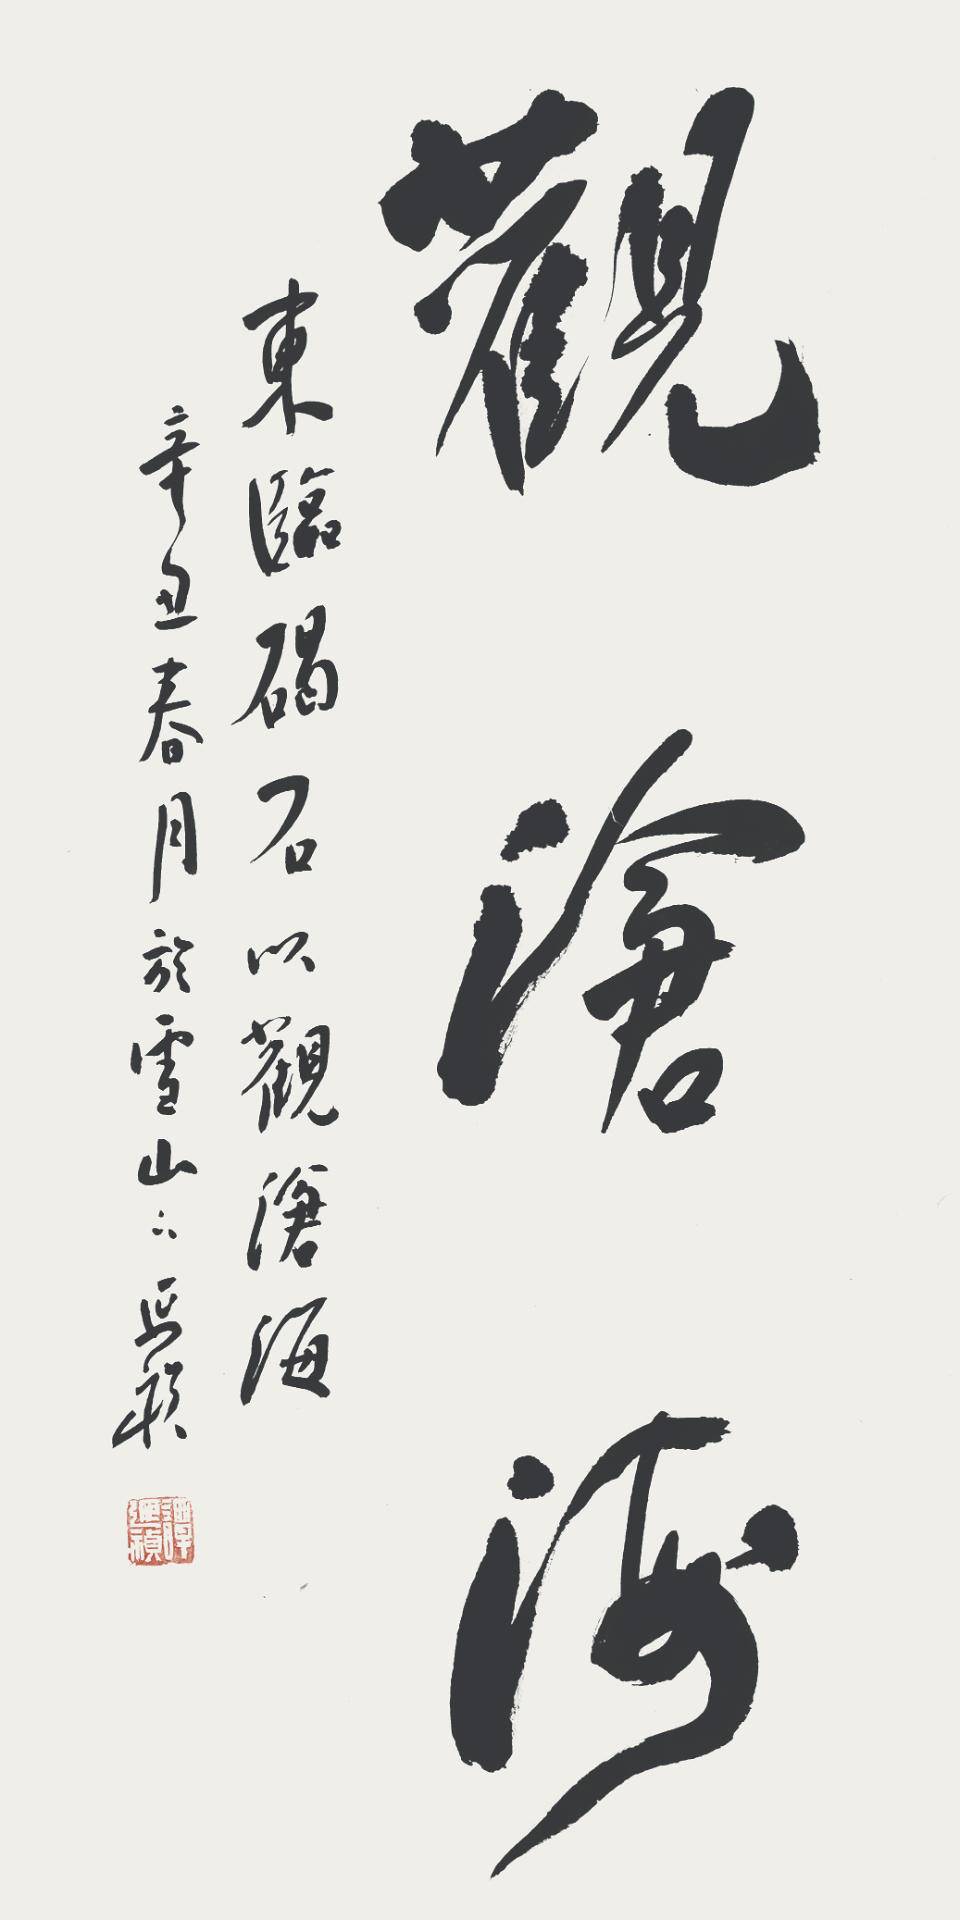 觀滄海
東臨碣石以觀滄海
辛丑春月於雪山